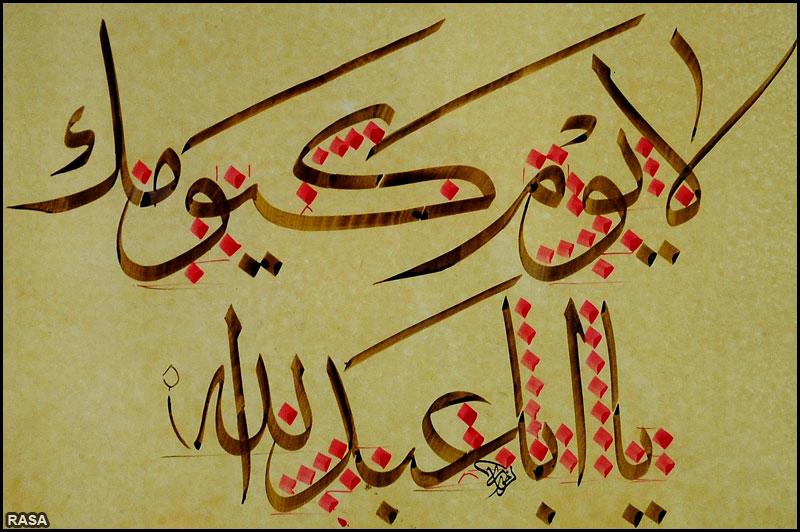 لا یوم کیومك
یا ابا عبدالله
RASA